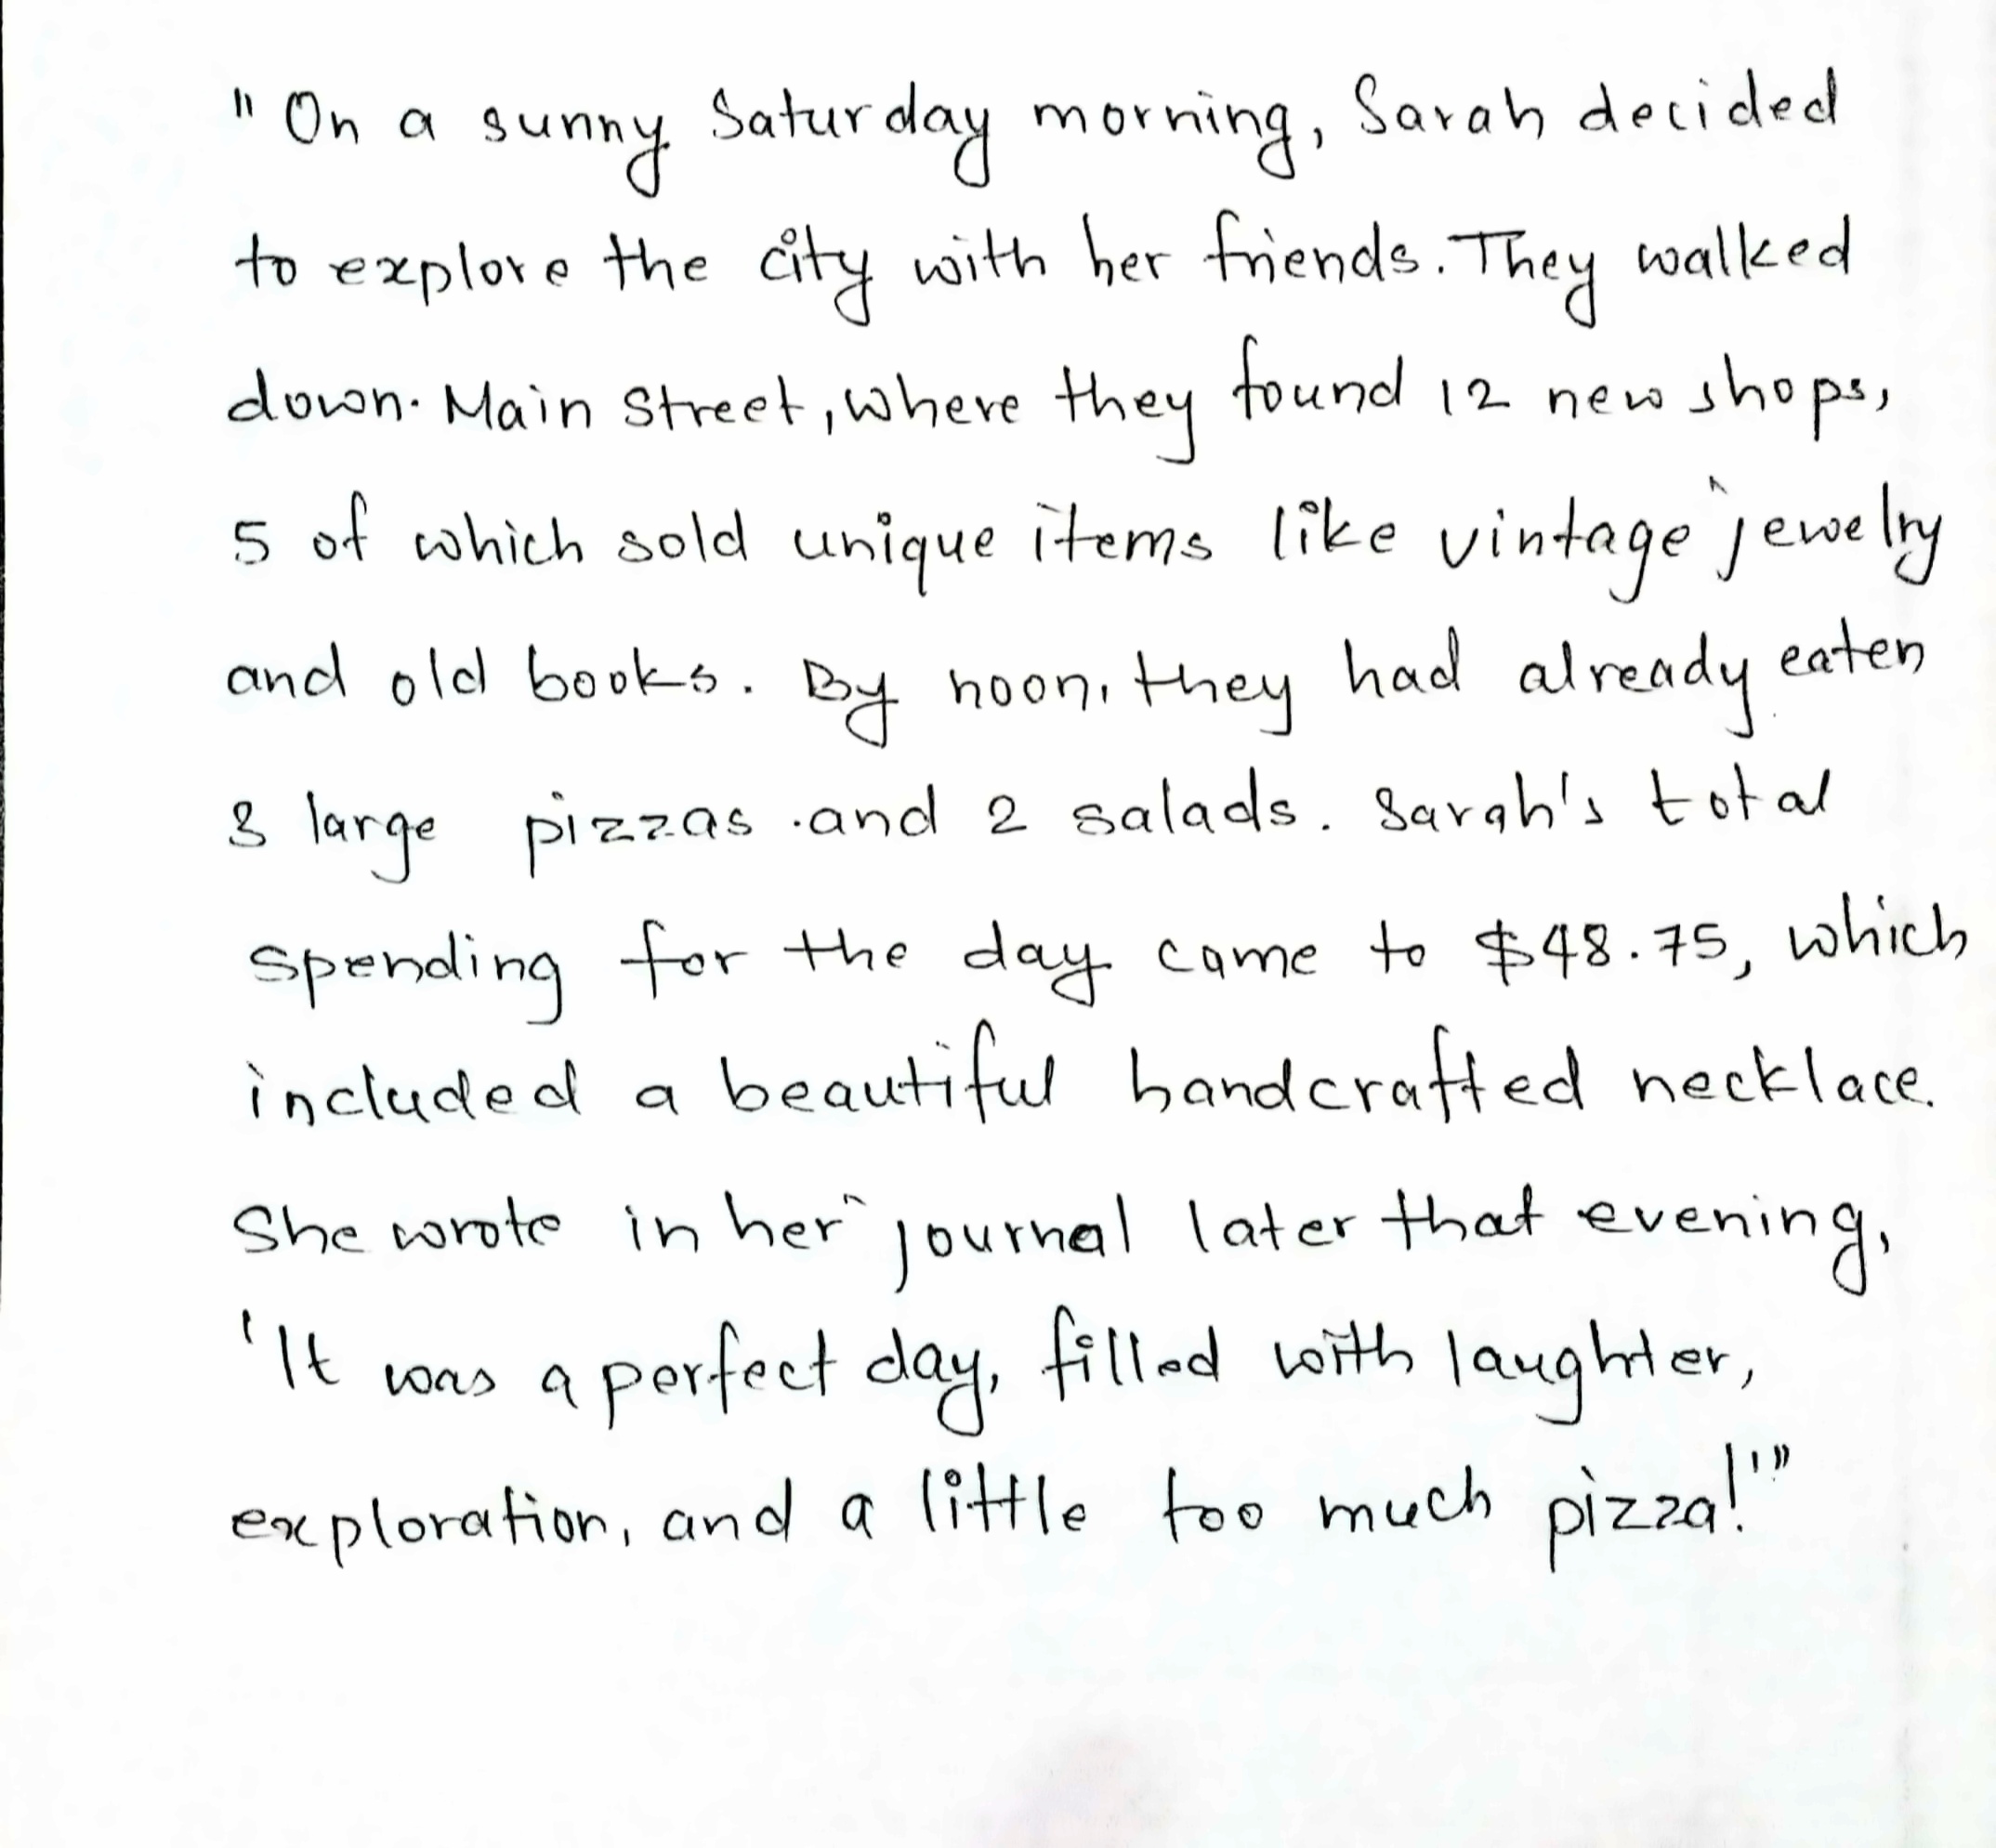 "On a sunny Saturday morning, Sarah decided
to explore the city with her friends. They walked
down. Main Street, where they found 12 new shops,
5 of which sold unique items like vintage jewelry
and old books. By noon, they had already eaten
3 large pizzas and 2 salads. Sarah's total
spending for the day came to $48.75, which
included a beautiful handcrafted necklace.
She wrote in her journal later that evening,
'It was a perfect day, filled with laughter,
exploration, and a little too much pizza!'"